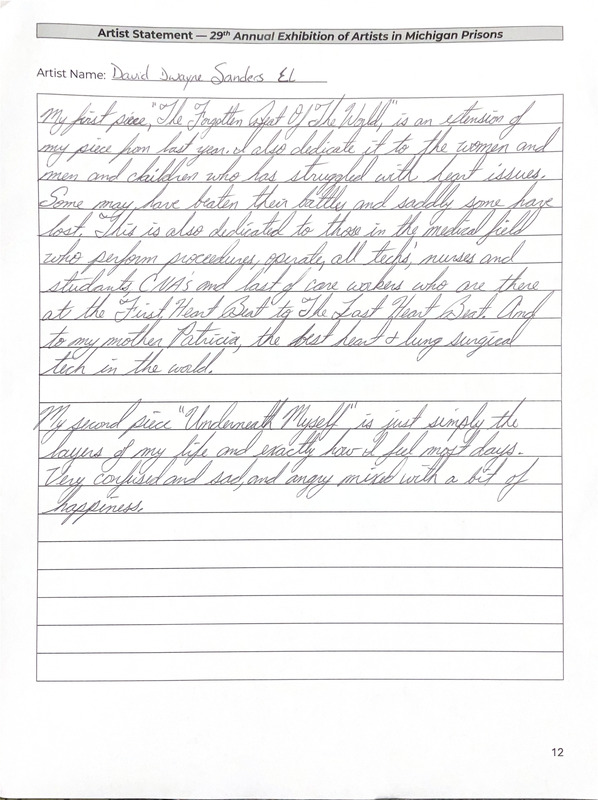 Artist Statement — 29th Annual Exhibition of Artists in Michigan Prisons
Artist Name: David Dwayne Sanders EL
My first piece, "The Forgotten Beat Of The World," is an extension of
my piece from last year. I also dedicate it to the women and
men and children who has struggled with heart issues.
Some may have beaten their battles and saddly some have
lost. This is also dedicated to those in the medical field
who perform proceedures, operate, all techs', nurses and
students, CNA's and last of care workers who are there
at the First Heart Beat to The Last Heart Beat. And
to my mother Patricia, the best heart & lung surgical
tech in the world.
My second piece "Underneath Myself" is just simply the
layers of my life and exactly how I feel most days.
Very confused and sad, and angry mixed with a bit of
happiness.
12